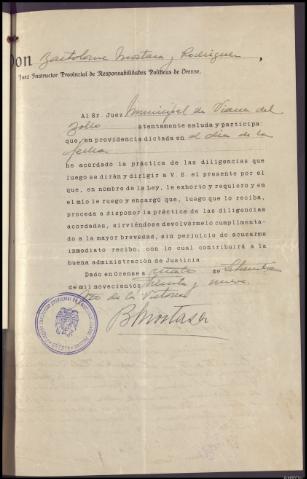 Don Bartolome Mostaza y Rodriguez,
Juez Instructor Provincial de Responsabilidades Políticas de Orense.
Al Sr Juez Municipal de Viana del
Bollo atentamente saluda y participa:
que, en providencia dictada en el dia de la
fecha
ha acordado la práctica de las diligencias que
luego se dirán y dirigir a V. S. el presente por el
que, en nombre de la Ley, le exhorto y requiero y en
el mío le ruego y encargo que, luego que lo reciba,
proceda a disponer la práctica de las diligencias
acordadas, sirviéndose devolvérmelo cumplimenta-
do a la mayor brevedad, sin perjuicio de acusarme
inmediato recibo, con lo cual contribuirá a la
buena administración de Justicia
Dado en Orense a de Septiembre
de mil novecientos treinta y nueve
Año de la Victoria
BMostaza